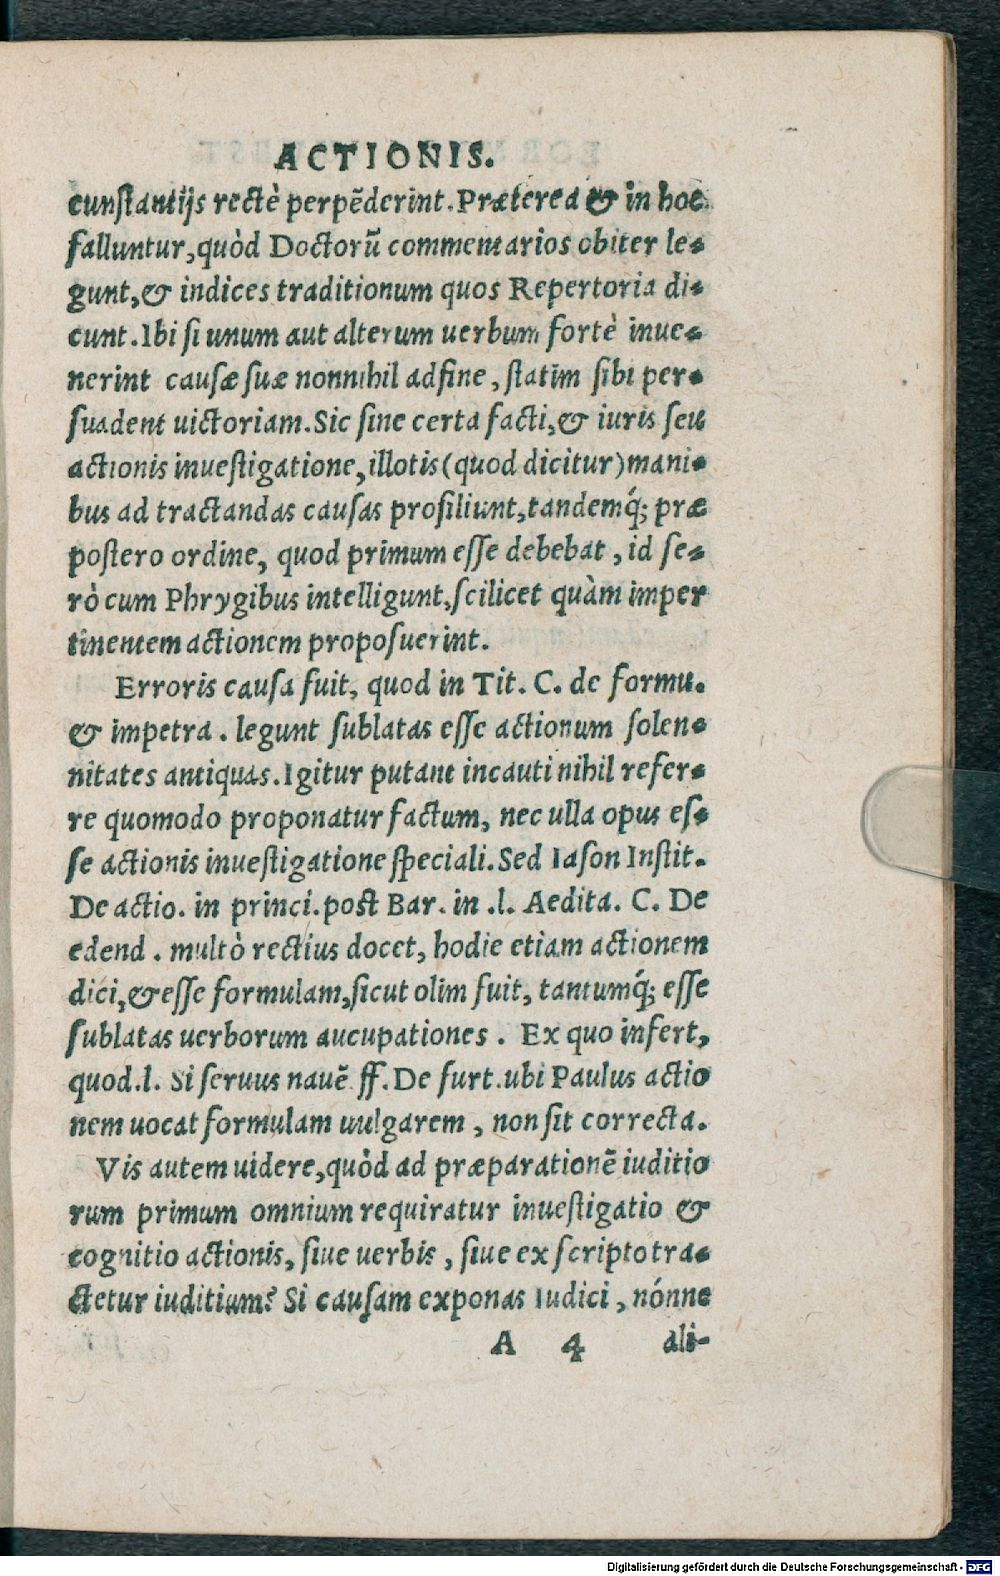 ACTIONIS.
cunstantijs rectè perpẽderint. Præterea & in hoc
falluntur, quòd Doctorũ commentarios obiter le-
gunt, & indices traditionum quos Repertoria di-
cunt. Ibi si unum aut alterum uerbum fortè inue-
nerint causæ suæ nonnihil adfine, statim sibi per-
suadent uictoriam. Sic sine certa facti, & iuris seu
actionis inuestigatione, illotis (quod dicitur) mani-
bus ad tractandas causas prosiliunt, tandemq́; præ
postero ordine, quod primum esse debebat, id se-
rò cum Phrygibus intelligunt, scilicet quàm imper
tinentem actionem proposuerint.
Erroris causa fuit, quod in Tit. C. de formu.
& impetra. legunt sublatas esse actionum solen-
nitates antiquas. Igitur putant incauti nihil refer-
re quomodo proponatur factum, nec ulla opus es-
se actionis inuestigatione speciali. Sed Iason Instit.
De actio. in princi. post Bar. in .l. Aedita. C. De
edend. multò rectius docet, hodie etiam actionem
dici, & esse formulam, sicut olim fuit, tantumq́; esse
sublatas uerborum aucupationes. Ex quo infert,
quod .l. Si seruus nauẽ ff. De furt. ubi Paulus actio
nem uocat formulam uulgarem, non sit correcta.
Vis autem uidere, quòd ad præparationẽ iuditio
rum primum omnium requiratur inuestigatio &
cognitio actionis, siue uerbis, siue ex scripto tra-
ctetur iuditium? Si causam exponas Iudici, nónne
A 4 ali-
Digitalisierung gefördert durch die Deutsche Forschungsgemeinschaft - DFG